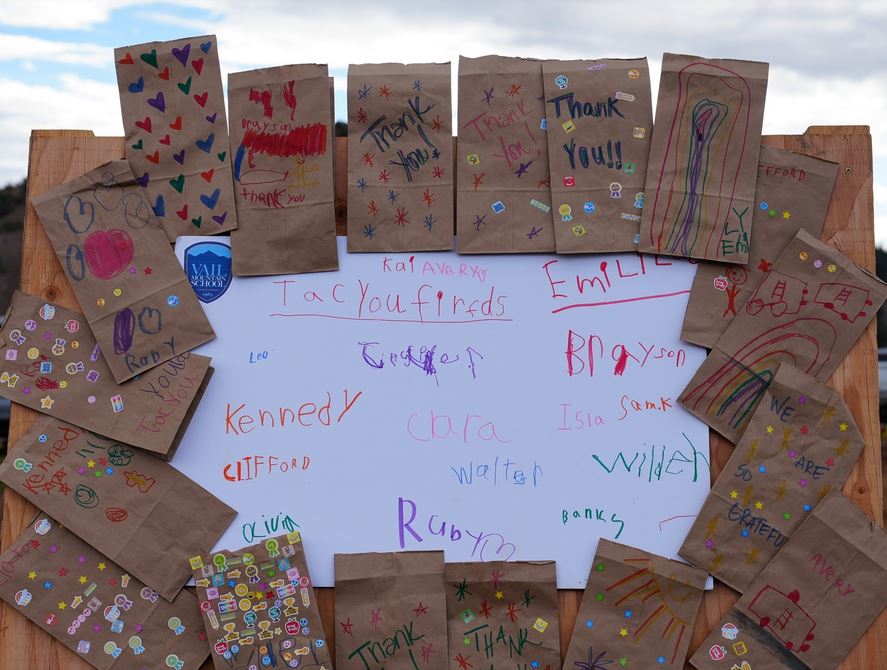 Brayson
thank you
Thank
you!
Thank
you!
Thank
You!!
LY
Em
CLIFFORD
VAIL
MOUNTAIN
SCHOOL
1962
Kai AVERY
TacYoufirds
EMILIE
Leo
Brayson
Kennedy
Clara
Isla
Sam.K
CLIFFORD
Walter
Wilder
Olivia
Ruby
Banks
Ruby
Kennedy
WE
ARE
SO
GRATEFUL
AVERY
Thank
THANK